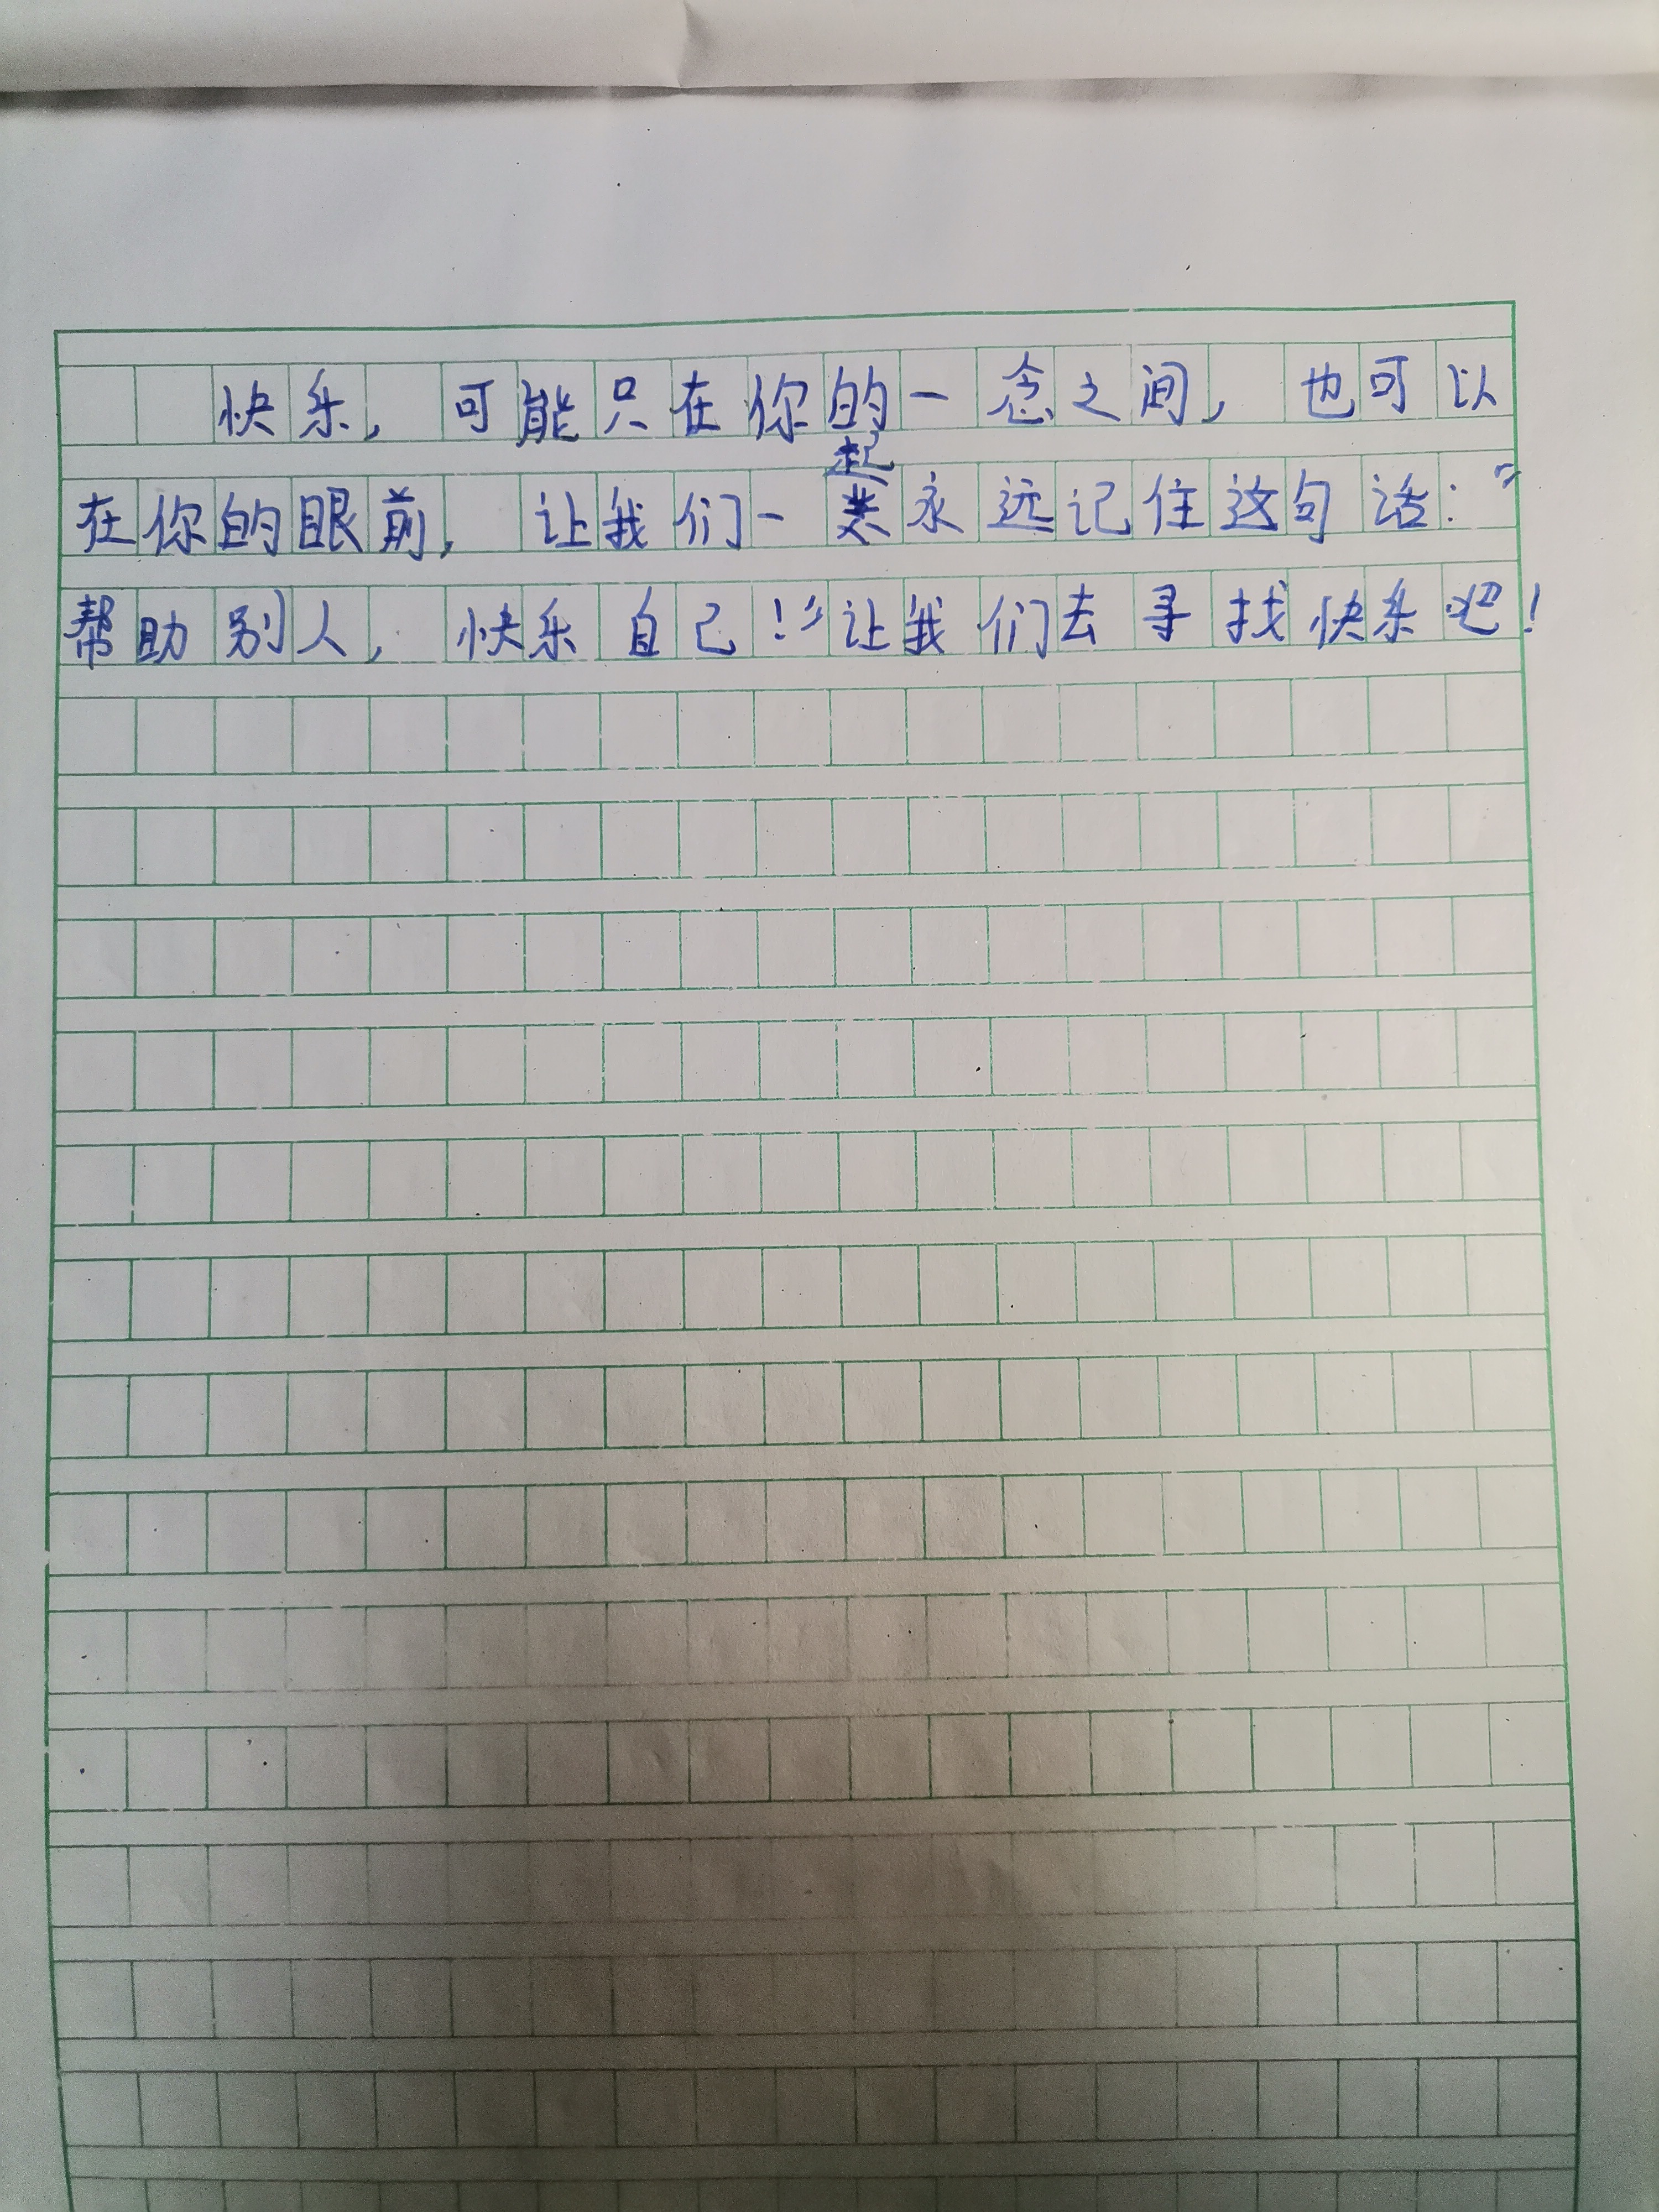 快乐，可能只在你的一念之间，也可以
在你的眼前，让我们一起永远记住这句话：“
帮助别人，快乐自己！”让我们去寻找快乐吧！